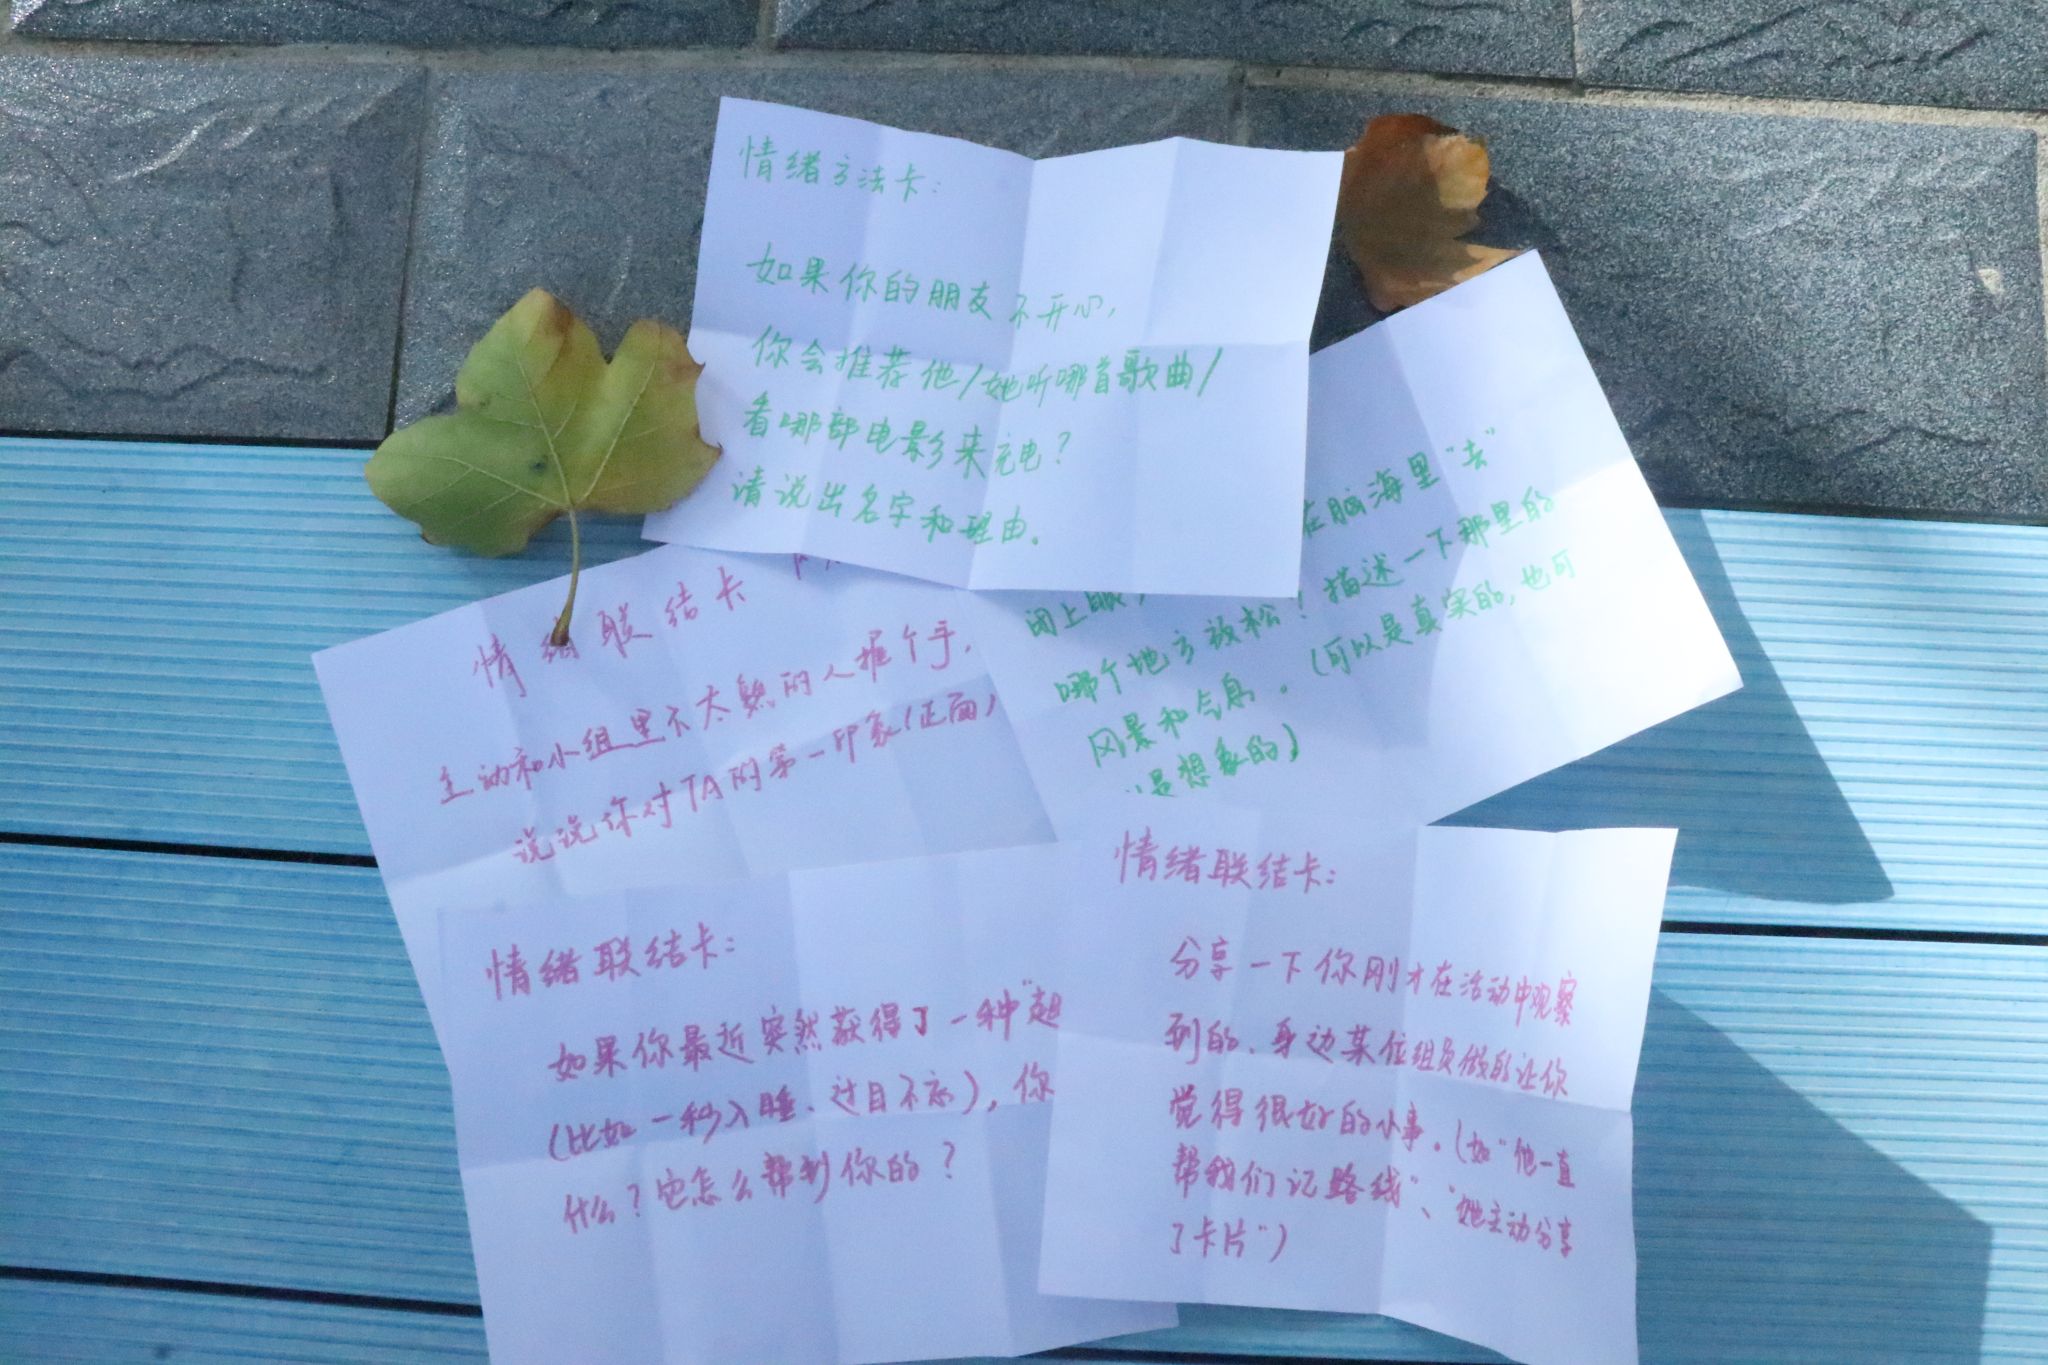 情绪方法卡：
如果你的朋友不开心，
你会推荐他/她听哪首歌曲/
看哪部电影来充电？
请说出名字和理由。
在脑海里“去”
闭上眼，
哪个地方放松！描述一下那里的
风景和气息。（可以是真实的，也可
以是想象的）
情绪联结卡
主动和小组里不太熟的人握个手，
说说你对TA的第一印象（正面）
情绪联结卡：
如果你最近突然获得了一种“超
（比如一秒入睡、过目不忘），你
什么？它怎么帮到你的？
情绪联结卡：
分享一下你刚才在活动中观察
到的、身边某位组员做的让你
觉得很好的小事。（如“他一直
帮我们记路线”、“她主动分享
了卡片”）